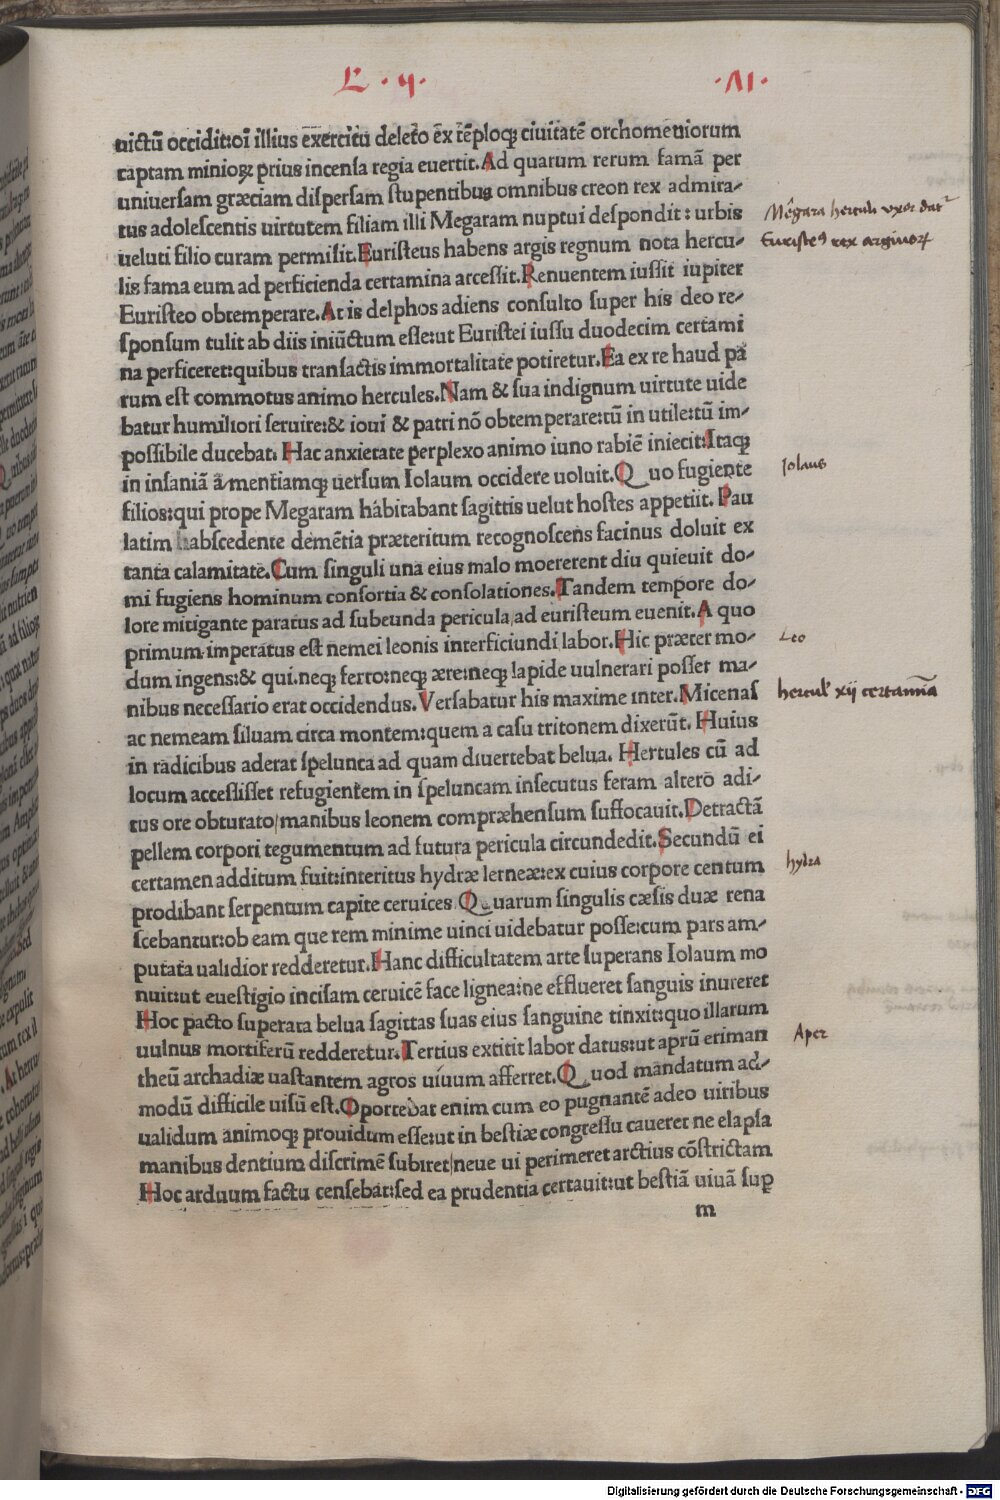 L · 4 · · VI ·
uictū occidit:oī illius exercitu deleto ex tēploq; ciuitatē orchomeniorum
captam minioꝝ prius incensa regia euertit.Ad quarum rerum famā per
uniuersam græciam dispersam stupentibus omnibus creon rex admira-
tus adolescentis uirtutem filiam illi Megaram nuptui despondit: urbis
ueluti filio curam permisit.Euristeus habens argis regnum nota hercu-
lis fama eum ad perficienda certamina arcessit.Renuentem iussit iupiter
Euristeo obtemperare.At is delphos adiens consulto super his deo re-
sponsum tulit ab diis iniūctum esse:ut Euristei iussu duodecim certami
na perficeret:quibus transactis immortalitate potiretur.Ea ex re haud pa
rum est commotus animo hercules.Nam & sua indignum uirtute uide
batur humiliori seruire:& ioui & patri nō obtemperare:tū in utile:tū im-
possibile ducebat. Hac anxietate perplexo animo iuno rabiē iniecit:Itaq;
in insaniā amentiamq; uersum Iolaum occidere uoluit.Quo fugiente
filios:qui prope Megaram habitabant sagittis uelut hostes appetiit. Pau
latim habscedente demētia præteritum recognoscens facinus doluit ex
tanta calamitate.Cum singuli una eius malo moererent diu quieuit do-
mi fugiens hominum consortia & consolationes.Tandem tempore do-
lore mitigante paratus ad subeunda pericula,ad euristeum euenit.A quo
primum imperatus est nemei leonis interficiundi labor.Hic præter mo-
dum ingens:& qui.neq; ferro:neq; ære:neq; lapide uulnerari posset ma-
nibus necessario erat occidendus.Versabatur his maxime inter.Micenas
ac nemeam siluam circa montem:quem a casu tritonem dixerūt. Huius
in radicibus aderat spelunca ad quam diuertebat belua. Hercules cū ad
locum accessisset refugientem in speluncam insecutus feram altero adi-
tus ore obturato/manibus leonem compræhensum suffocauit.Detractā
pellem corpori tegumentum ad futura pericula circundedit.Secundū ei
certamen additum fuit:interitus hydræ lerneæ:ex cuius corpore centum
prodibant serpentum capite ceruices.Quarum singulis cæsis duæ rena
scebantur:ob eam que rem minime uinci uidebatur posse:cum pars am-
putata ualidior redderetur.Hanc difficultatem arte superans Iolaum mo
nuit:ut euestigio incisam ceruicē face lignea:ne efflueret sanguis inureret
Hoc pacto superata belua sagittas suas eius sanguine tinxit:quo illarum
uulnus mortiferū redderetur.Tertius extitit labor datus:ut aprū eriman
theū archadiæ uastantem agros uiuum afferret.Quod mandatum ad-
modū difficile uisū est.Oportebat enim cum eo pugnantē adeo uiribus
ualidum animoq; prouidum esse:ut in bestiæ congressu caueret ne elapsa
manibus dentium discrimē subiret/neue ui perimeret arctius cōstrictam
Hoc arduum factu censebat:sed ea prudentia certauit:ut bestiā uiuā sup
m
Megara herculi vxor dat
Euriste9 rex argiuoꝝ
Iolaus
Leo
hercul xij certamina
hydra
Aper
Digitalisierung gefördert durch die Deutsche Forschungsgemeinschaft - DFG